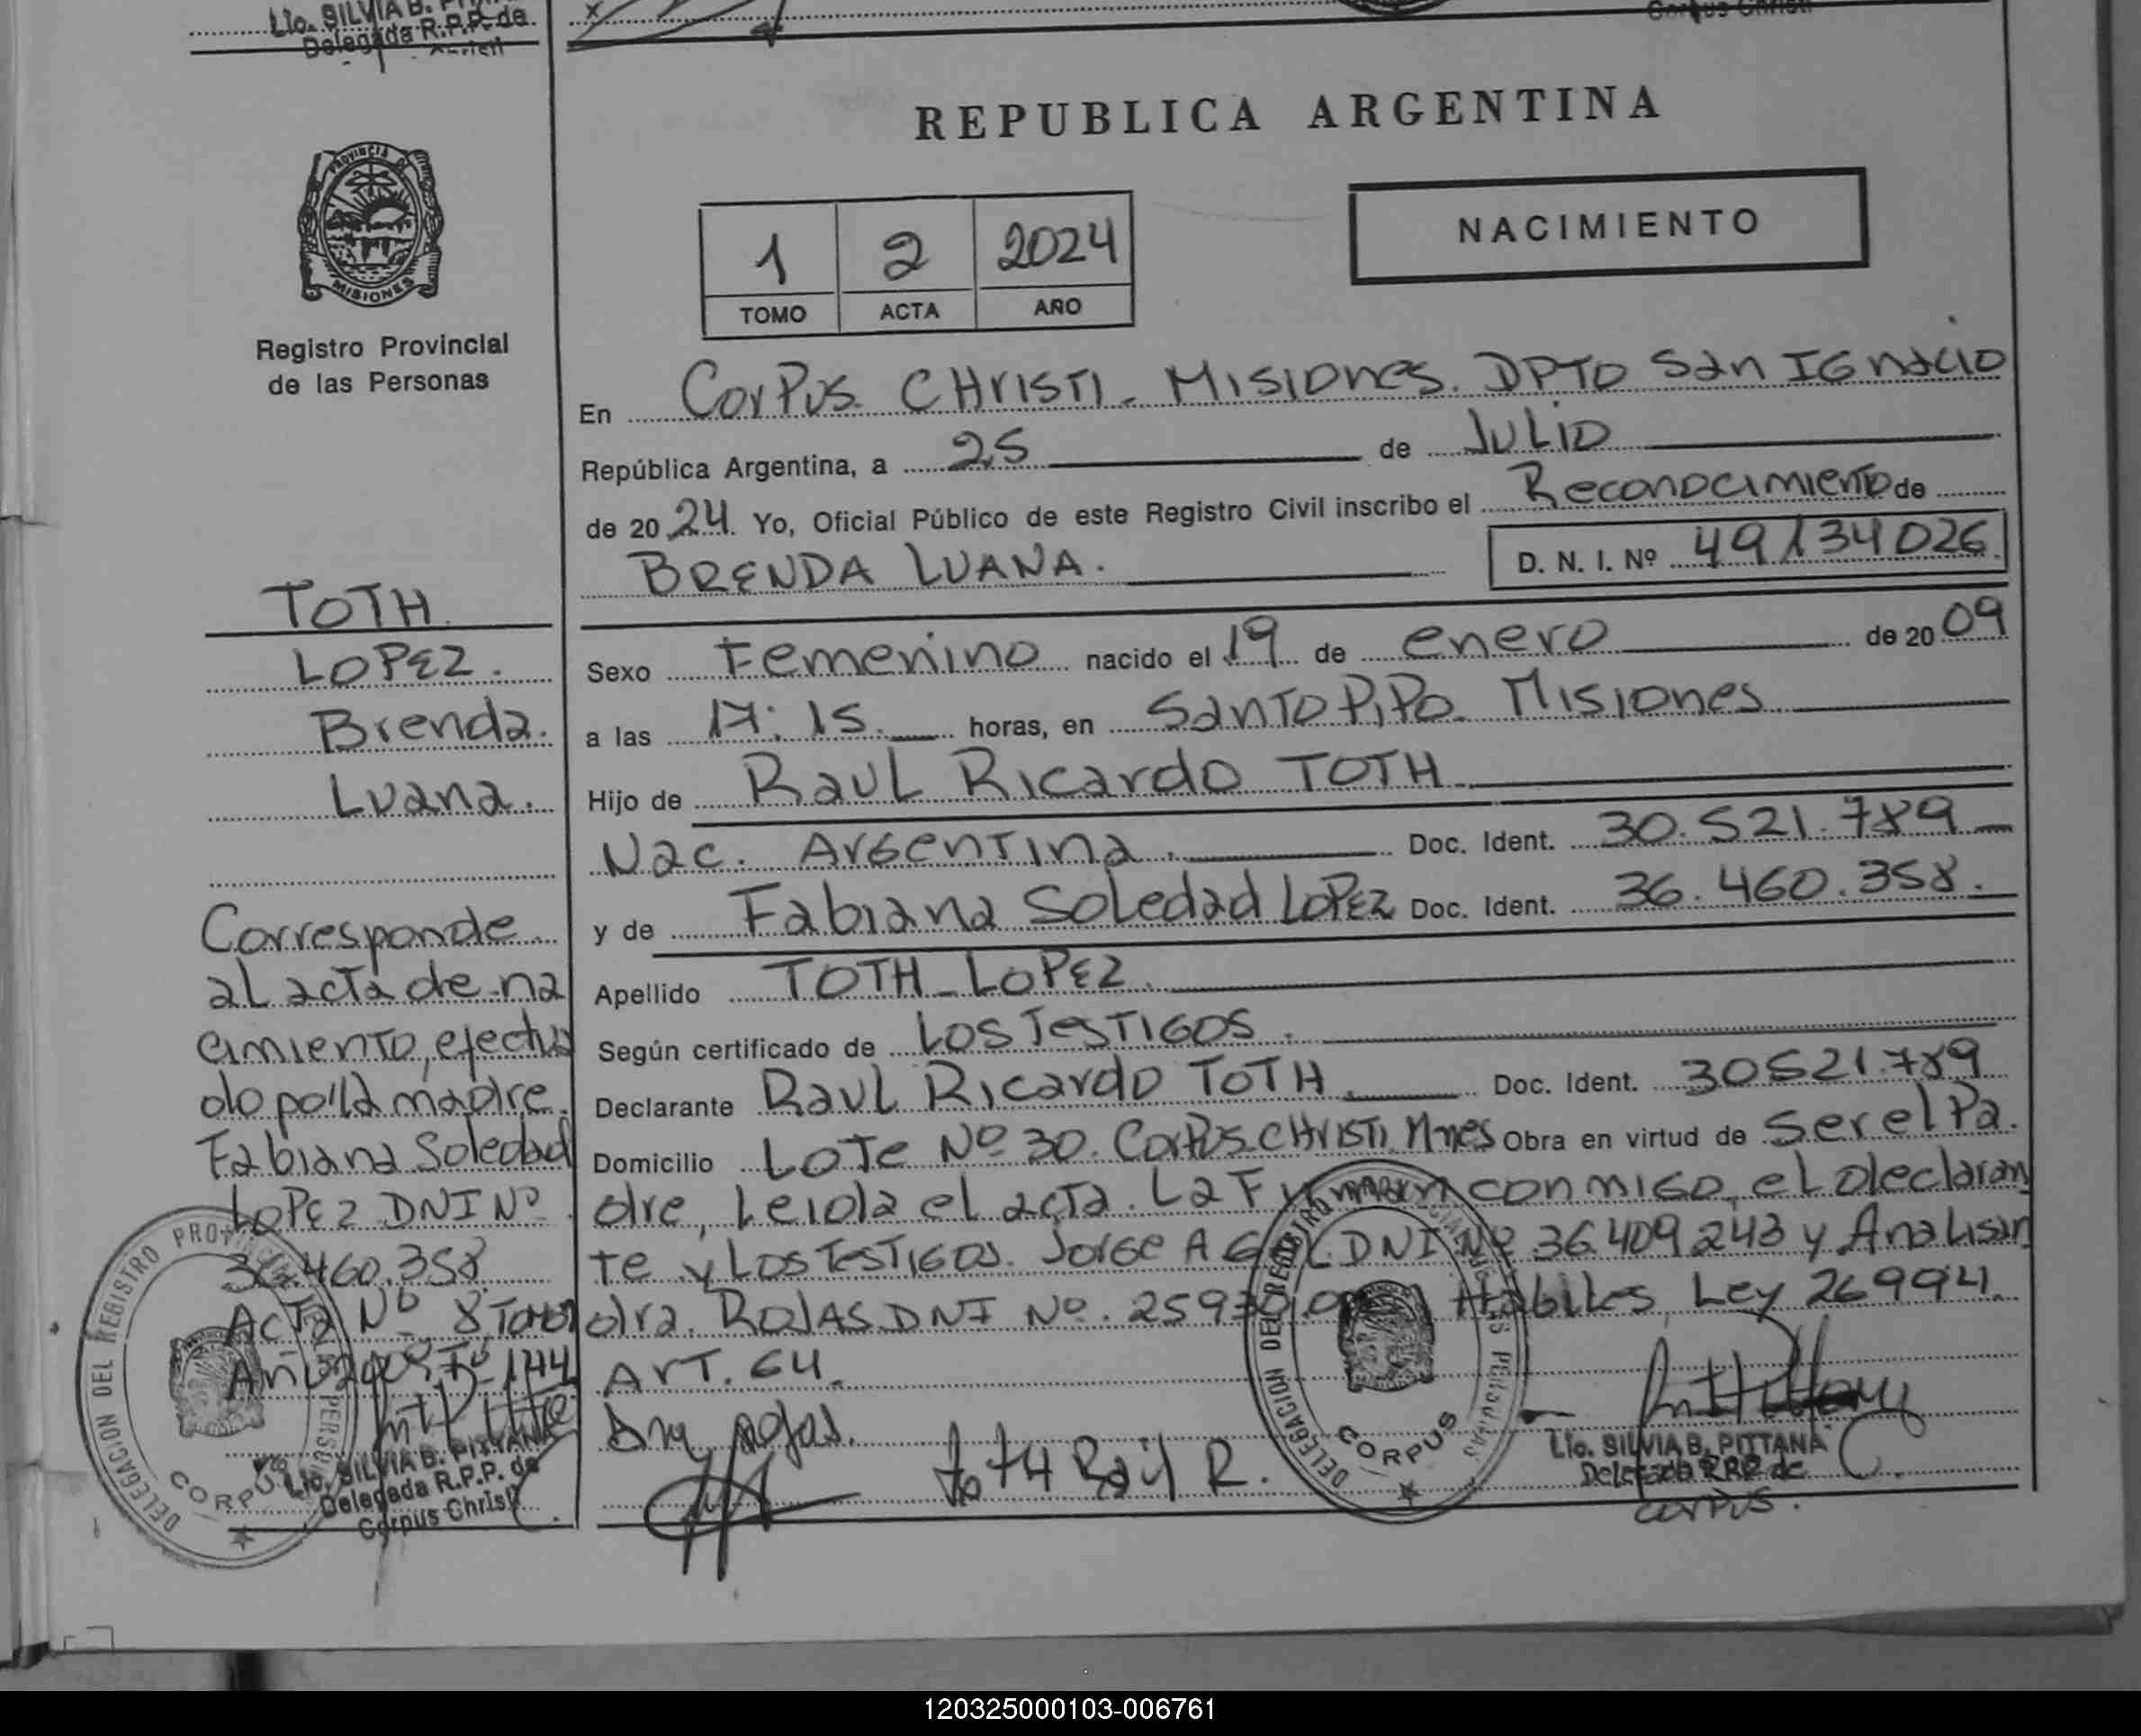 Lic. SILVIA B.
Delegada R.P.P. de
Corpus Christi
PROVINCIA DE
MISIONES
Registro Provincial
de las Personas
TOTH
LOPEZ.
Brenda.
Luana.
Corresponde
al acta de na
cimiento, efectua
do por la madre
Fabiana Soledad
LOPEZ DNI Nº
36.460.358
Acta Nº 8 Tomo 1
REPUBLICA ARGENTINA
NACIMIENTO
1 2 2024
TOMO ACTA AÑO
En Corpus CHristi - Misiones. DPTO San IGnacio
República Argentina, a 25 de Julio
de 2024. Yo, Oficial Público de este Registro Civil inscribo el Reconocimiento de
BRENDA LUANA. D. N. I. Nº 49134026
Sexo Femenino nacido el 19 de enero de 2009
a las 17:15. horas, en Santo Pipo. Misiones
Hijo de Raul Ricardo TOTH
Nac. Argentina. Doc. Ident. 30.521.789
y de Fabiana Soledad LOPEZ Doc. Ident. 36.460.358.
Apellido TOTH - LOPEZ.
Según certificado de LOS TESTIGOS.
Declarante Raul Ricardo TOTH Doc. Ident. 30521.789
Domicilio LOTE Nº 30. Corpus CHristi Mnes Obra en virtud de Ser el Pa.
dre, Leida el acta. La Firman conmigo, el declaran
te y Los Testigos. Jorge A DNI Nº 36.409.243 y Analisan
dra. ROJAS DNI Nº. Hábiles, Ley 26994.
ART. 64.
Ana rojas.
toth Raúl R.
DELEGACION DEL REGISTRO PROVINCIAL
CORPUS
Lic. SILVIA B. PITTANA
Delegada R.P.P. de
Corpus Christi
DELEGACION DEL REGISTRO
CORPUS
Lic. SILVIA B. PITTANA
Delegada R.P.P. de
corpus.
120325000103-006761